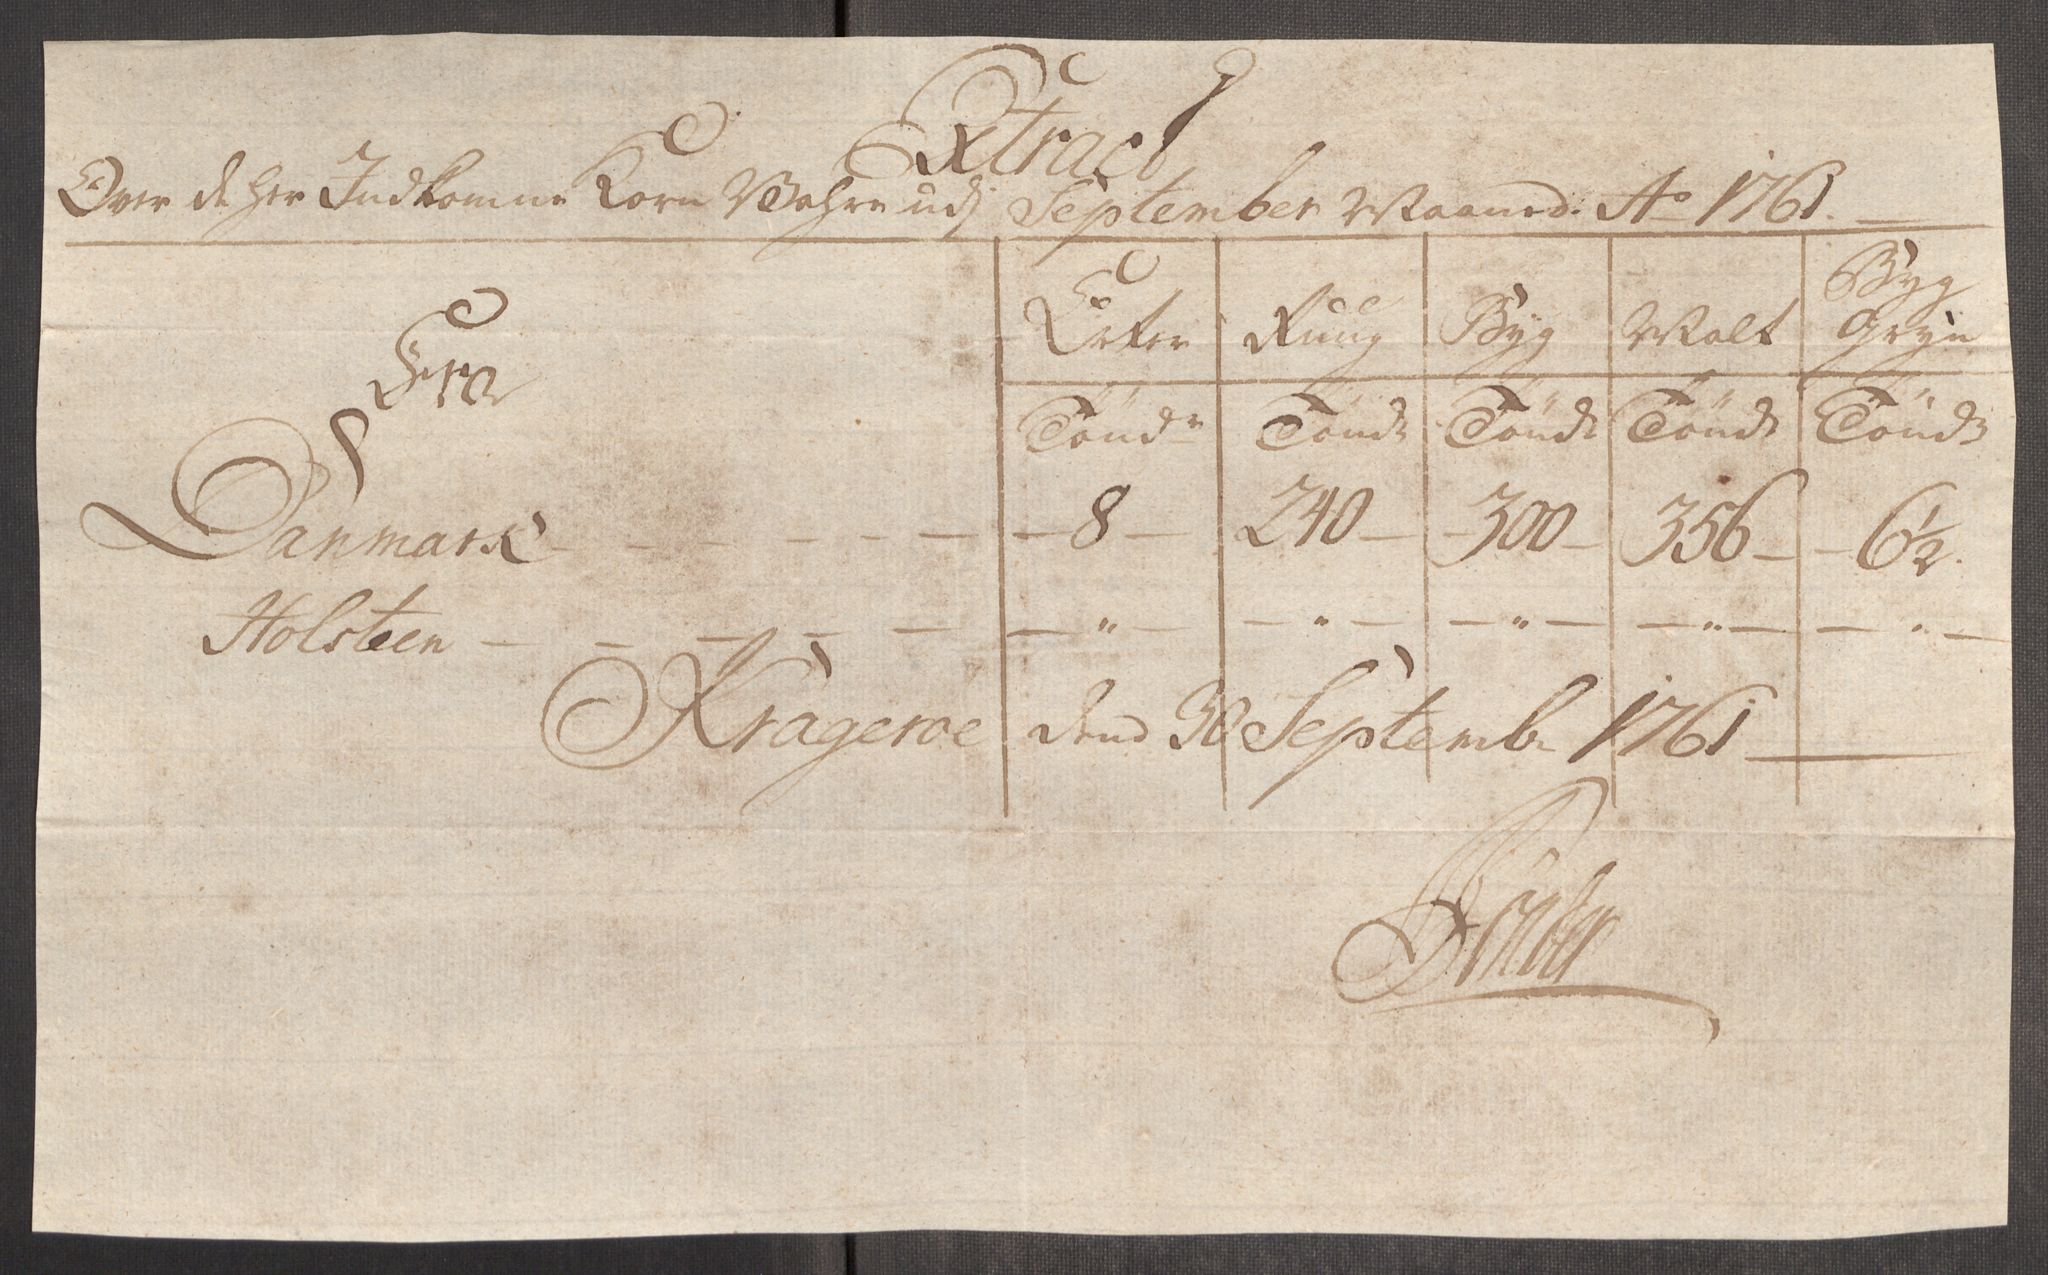 Extract
Over de her Indkomne Korn Wahre udj September Maaned. Ao 1761.
Fra
Erter Ruug Byg Malt Byg Gryn
Tönder Tönd Tönd Tönd Tönd
Danmark - - - - - 8 - 240 - 300 - 356 - 6½.
Holsteen - - - - - " - " - " - " - " -
Krageröe dend 30 Septembr 1761